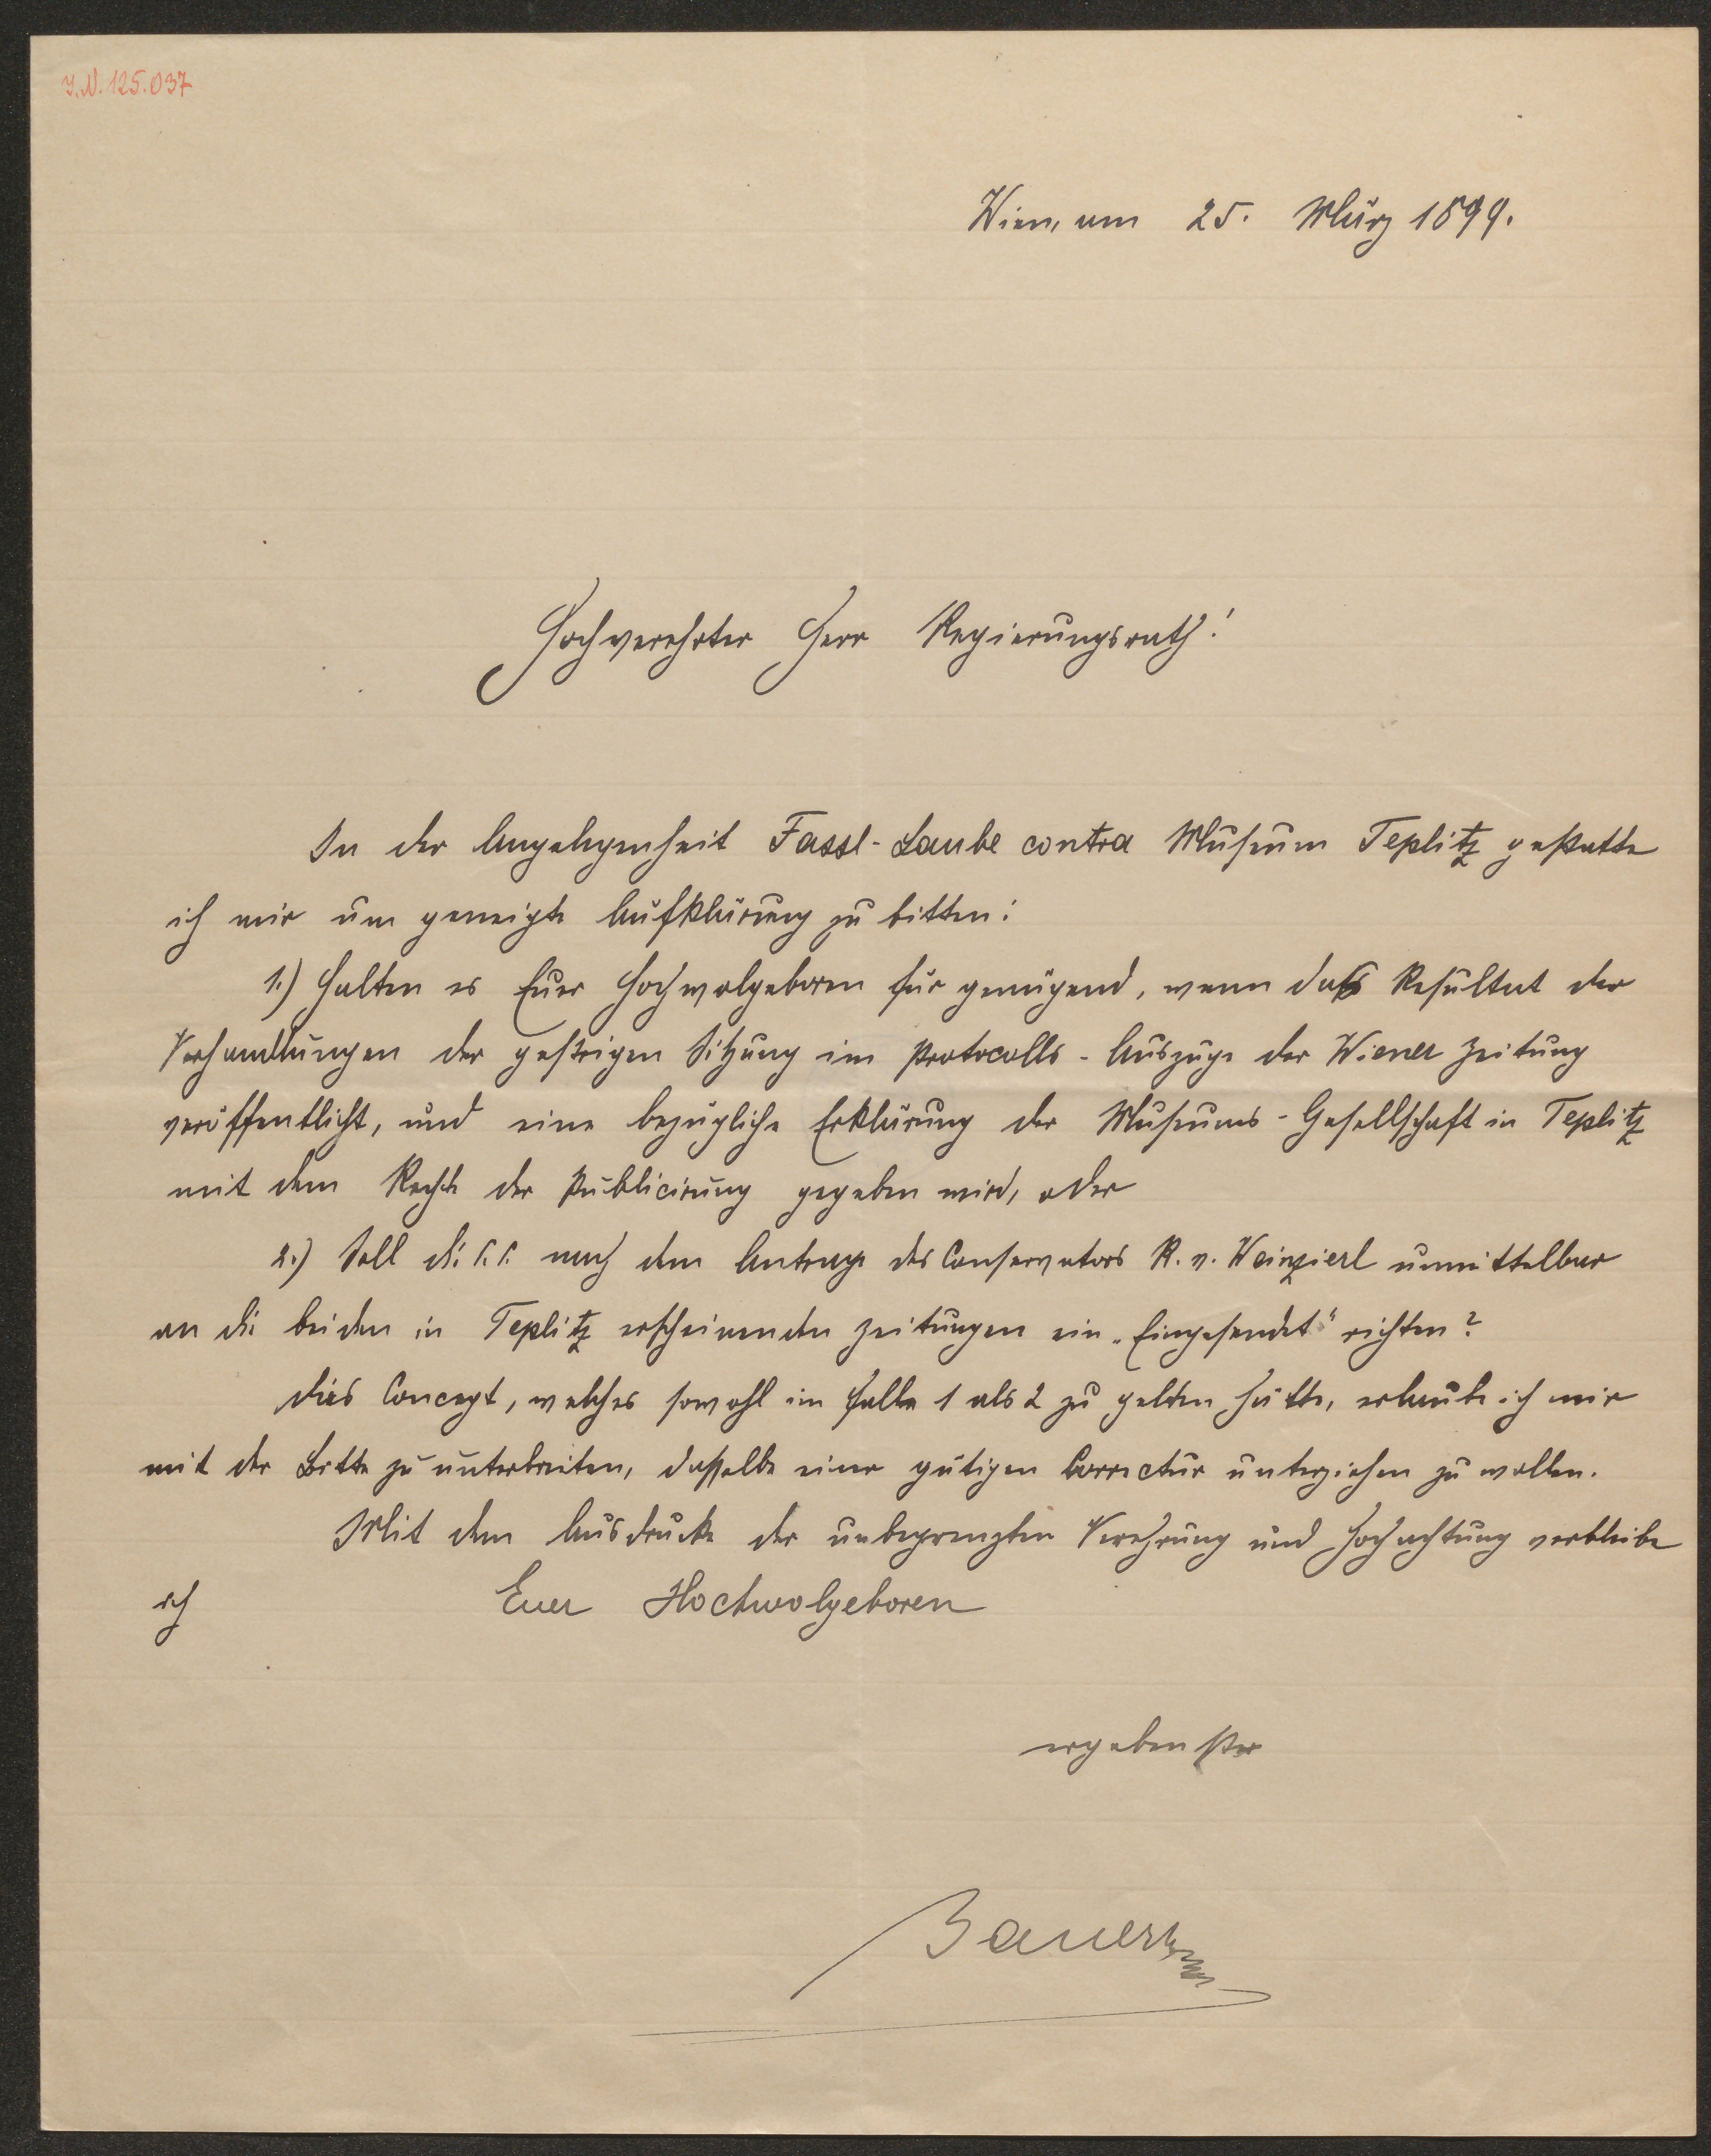 J.N. 125.037
Wien, am 25. März 1899.
Hochverehrter Herr Regierungsrath!
In der Angelegenheit Fassl-Laube contra Museum Teplitz gestatte
ich mir um geneigte Aufklärung zu bitten:
1.) Halten es Euer Hochwolgeboren für genügend, wenn das Resultat der
Verhandlungen der gestrigen Sitzung im Protocolls-Auszuge der Wiener Zeitung
veröffentlicht, und eine bezügliche Erklärung der Museums-Gesellschaft in Teplitz
mit dem Rechte der Publicirung gegeben wird, oder
2.) Soll die C.C. nach dem Antrage des Conservators R. v. Weinzierl unmittelbar
an die beiden in Teplitz erscheinenden Zeitungen ein „Eingesendet" richten?
Dies Concept, welches sowohl im Falle 1 als 2 zu gelten hätte, erlaube ich mir
mit der Bitte zu unterbreiten, dasselbe einer gütigen Correctur unterziehen zu wollen.
Mit dem Ausdrucke der unbegrenzten Verehrung und Hochachtung verbleibe
ich Euer Hochwolgeboren
ergebenster
Bauer